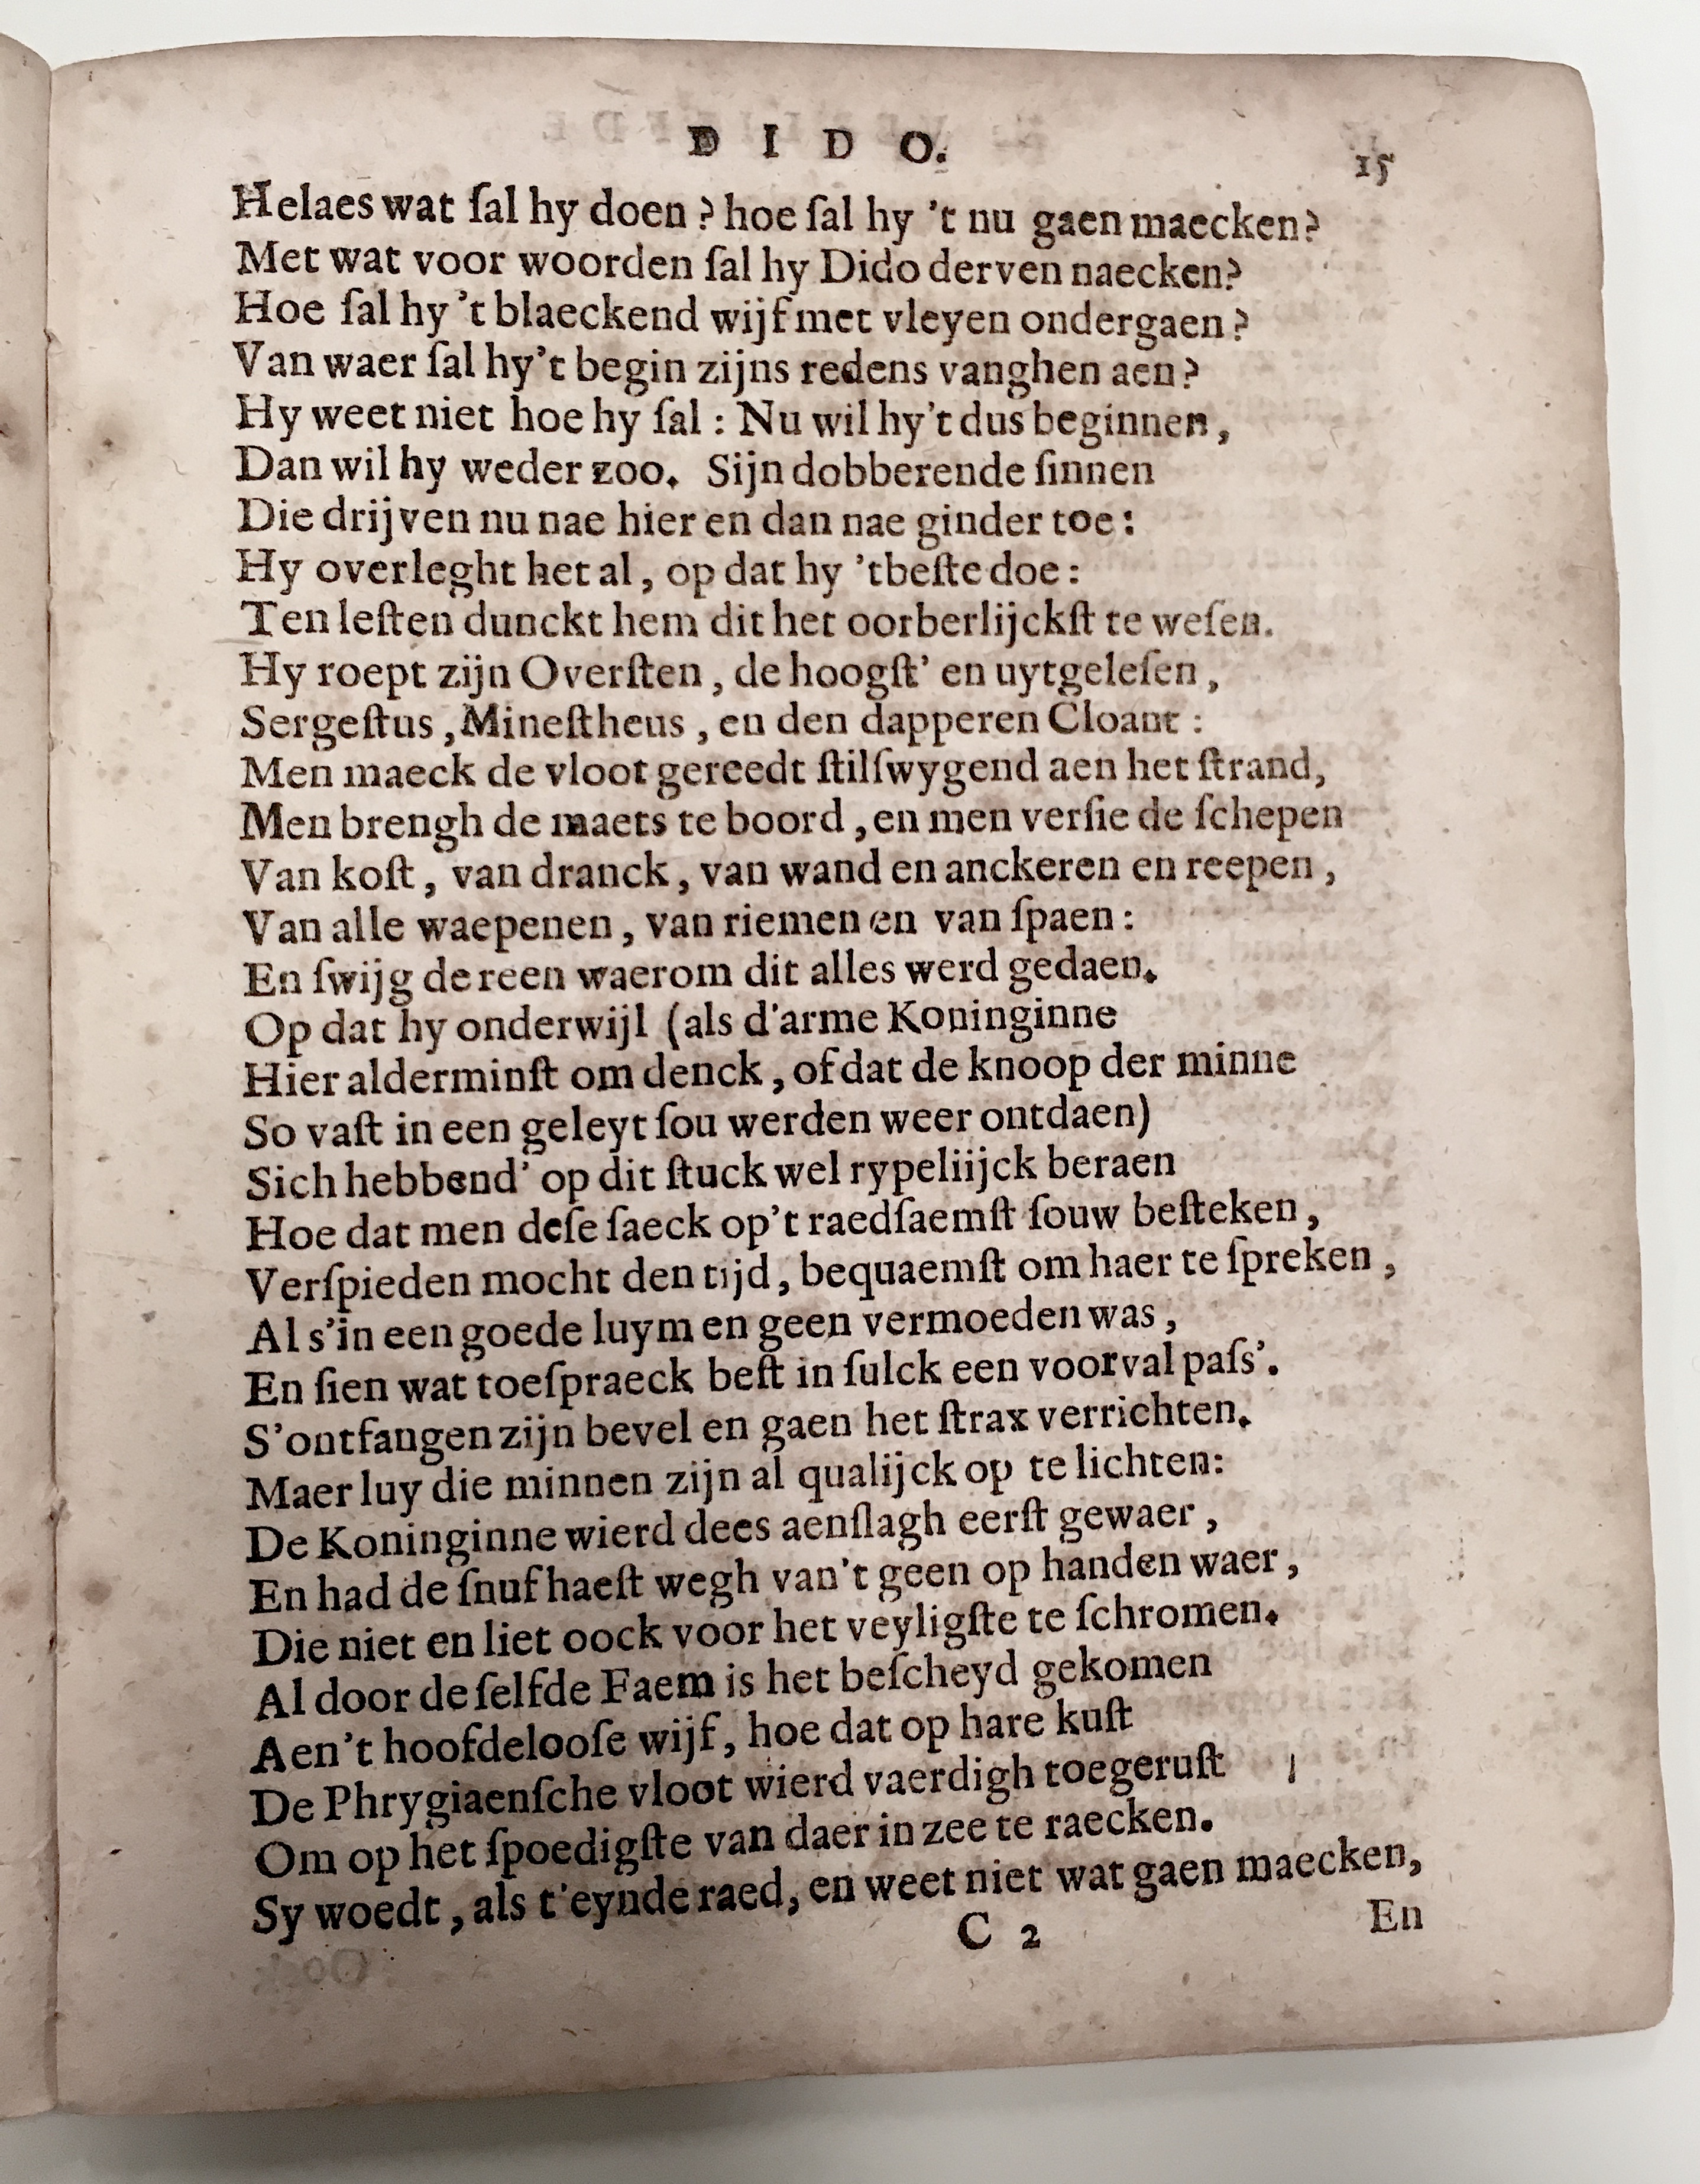 DIDO. 15
Helaes wat ſal hy doen? hoe ſal hy 't nu gaen maecken?
Met wat voor woorden ſal hy Dido derven naecken?
Hoe ſal hy 't blaeckend wijf met vleyen ondergaen?
Van waer ſal hy't begin zijns redens vanghen aen?
Hy weet niet hoe hy ſal: Nu wil hy't dus beginnen,
Dan wil hy weder zoo. Sijn dobberende ſinnen
Die drijven nu nae hier en dan nae ginder toe:
Hy overleght het al, op dat hy 'tbeſte doe:
Ten leſten dunckt hem dit het oorberlijckſt te weſen.
Hy roept zijn Overſten, de hoogſt' en uytgeleſen,
Sergeſtus, Mineſtheus, en den dapperen Cloant:
Men maeck de vloot gereedt ſtilſwygend aen het ſtrand,
Men brengh de maets te boord, en men verſie de ſchepen
Van koſt, van dranck, van wand en anckeren en reepen,
Van alle waepenen, van riemen en van ſpaen:
En ſwijg de reen waerom dit alles werd gedaen.
Op dat hy onderwijl (als d'arme Koninginne
Hier alderminſt om denck, of dat de knoop der minne
So vaſt in een geleyt ſou werden weer ontdaen)
Sich hebbend' op dit ſtuck wel rypeliijck beraen
Hoe dat men deſe ſaeck op't raedſaemſt ſouw beſteken,
Verſpieden mocht den tijd, bequaemſt om haer te ſpreken,
Al s'in een goede luym en geen vermoeden was,
En ſien wat toeſpraeck beſt in ſulck een voorval paſs'.
S'ontfangen zijn bevel en gaen het ſtrax verrichten.
Maer luy die minnen zijn al qualijck op te lichten:
De Koninginne wierd dees aenſlagh eerſt gewaer,
En had de ſnuf haeſt wegh van't geen op handen waer,
Die niet en liet oock voor het veyligſte te ſchromen.
Al door de ſelfde Faem is het beſcheyd gekomen
Aen't hoofdelooſe wijf, hoe dat op hare kuſt
De Phrygiaenſche vloot wierd vaerdigh toegeruſt
Om op het ſpoedigſte van daer in zee te raecken.
Sy woedt, als t'eynde raed, en weet niet wat gaen maecken,
C 2 En